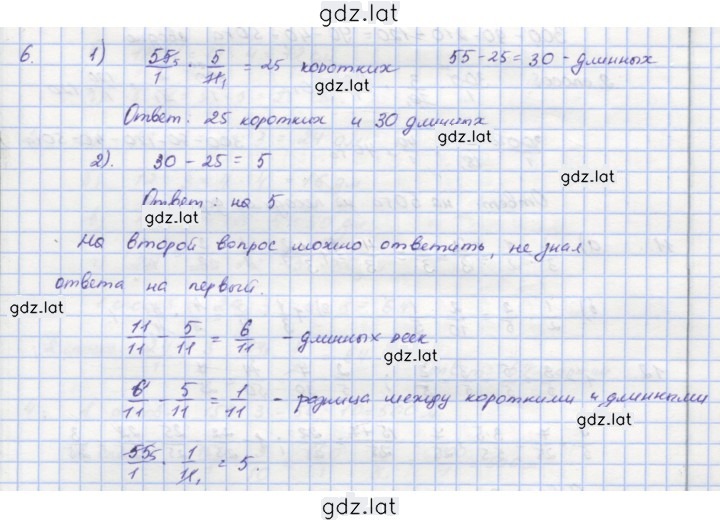 gdz.lat
6. 1) 55/1 · 5/11 = 25 коротких 55 - 25 = 30 - длинных
gdz.lat
Ответ: 25 коротких и 30 длинных
gdz.lat
2). 30 - 25 = 5
gdz.lat
Ответ: на 5
gdz.lat
На второй вопрос можно ответить, не зная
ответа на первый.
gdz.lat
11/11 - 5/11 = 6/11 - длинных реек
gdz.lat
6/11 - 5/11 = 1/11 - разница между короткими и длинными
gdz.lat
55/1 · 1/11 = 5.
gdz.lat